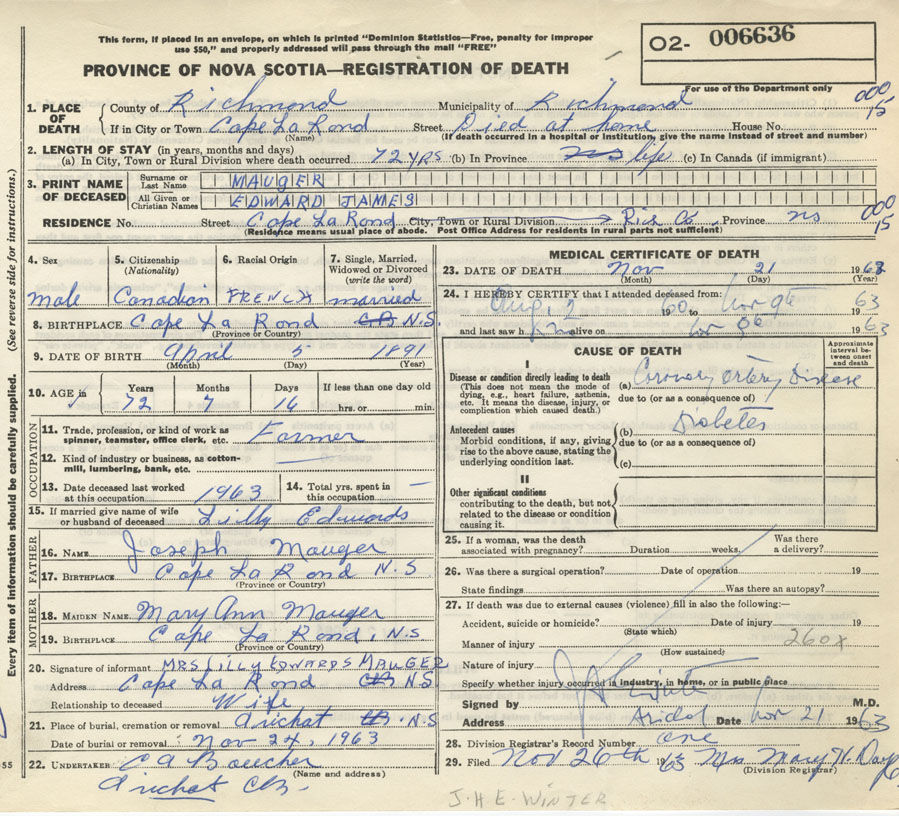 This form, if placed in an envelope, on which is printed "Dominion Statistics—Free, penalty for improper
use $50," and properly addressed will pass through the mail "FREE"
O2- 006636
PROVINCE OF NOVA SCOTIA—REGISTRATION OF DEATH
For use of the Department only
1. PLACE OF DEATH County of Richmond Municipality of Richmond 000
If in City or Town Cape La Rond Street Died at home House No. 15
(Name) (If death occurred in a hospital or Institution, give the name instead of street and number)
2. LENGTH OF STAY (in years, months and days)
(a) In City, Town or Rural Division where death occurred 72 yrs (b) In Province life (c) In Canada (if immigrant)
3. PRINT NAME OF DECEASED Surname or Last Name MAUGER
All Given or Christian Names EDWARD JAMES
RESIDENCE No. Street Cape La Rond City, Town or Rural Division Rich Co. Province NS 000 15
(Residence means usual place of abode. Post Office Address for residents in rural parts not sufficient)
4. Sex 5. Citizenship (Nationality) 6. Racial Origin 7. Single, Married, Widowed or Divorced (write the word)
male Canadian FRENCH married
8. BIRTHPLACE Cape La Rond CB N.S.
(Province or Country)
9. DATE OF BIRTH April 5 1891
(Month) (Day) (Year)
10. AGE in Years Months Days If less than one day old
72 7 16 hrs. or min.
OCCUPATION
11. Trade, profession, or kind of work as spinner, teamster, office clerk, etc. Farmer
12. Kind of industry or business, as cotton-mill, lumbering, bank, etc. —
13. Date deceased last worked at this occupation 1963 14. Total yrs. spent in this occupation —
15. If married give name of wife or husband of deceased Lilly Edwards
FATHER
16. NAME Joseph Mauger
17. BIRTHPLACE Cape La Rond N.S.
(Province or Country)
MOTHER
18. MAIDEN NAME Mary Ann Mauger
19. BIRTHPLACE Cape La Rond, N.S
(Province or Country)
20. Signature of informant MRS LILLY EDWARDS MAUGER
Address Cape La Rond CB N.S.
Relationship to deceased Wife
21. Place of burial, cremation or removal Arichat CB. N.S
Date of burial or removal Nov 24, 1963
22. UNDERTAKER C A Boucher
(Name and address)
Arichat CB.
MEDICAL CERTIFICATE OF DEATH
23. DATE OF DEATH Nov 21 1963
(Month) (Day) (Year)
24. I HEREBY CERTIFY that I attended deceased from:
Aug. 2 1960 to Nov 63
and last saw h alive on Nov 1963
CAUSE OF DEATH
Approximate interval between onset and death
I
Disease or condition directly leading to death (a) Coronary artery Disease
(This does not mean the mode of dying, e.g., heart failure, asthenia, etc. It means the disease, injury, or complication which caused death.)
due to (or as a consequence of)
Antecedent causes (b) Diabetes
Morbid conditions, if any, giving rise to the above cause, stating the underlying condition last.
due to (or as a consequence of)
(c)
II
Other significant conditions
contributing to the death, but not related to the disease or condition causing it.
25. If a woman, was the death associated with pregnancy? Duration weeks. Was there a delivery?
26. Was there a surgical operation? Date of operation 19
State findings Was there an autopsy?
27. If death was due to external causes (violence) fill in also the following:—
Accident, suicide or homicide? Date of injury 19
(State which)
Manner of injury 260x
(How sustained)
Nature of injury
Specify whether injury occurred in industry, in home, or in public place
Signed by M.D.
Address Date Nov 21 1963
28. Division Registrar's Record Number one
29. Filed Nov 26th 1963 Mrs Mary H.
(Division Registrar)
J.H.E. WINTER
Every item of information should be carefully supplied. (See reverse side for instructions.)
55